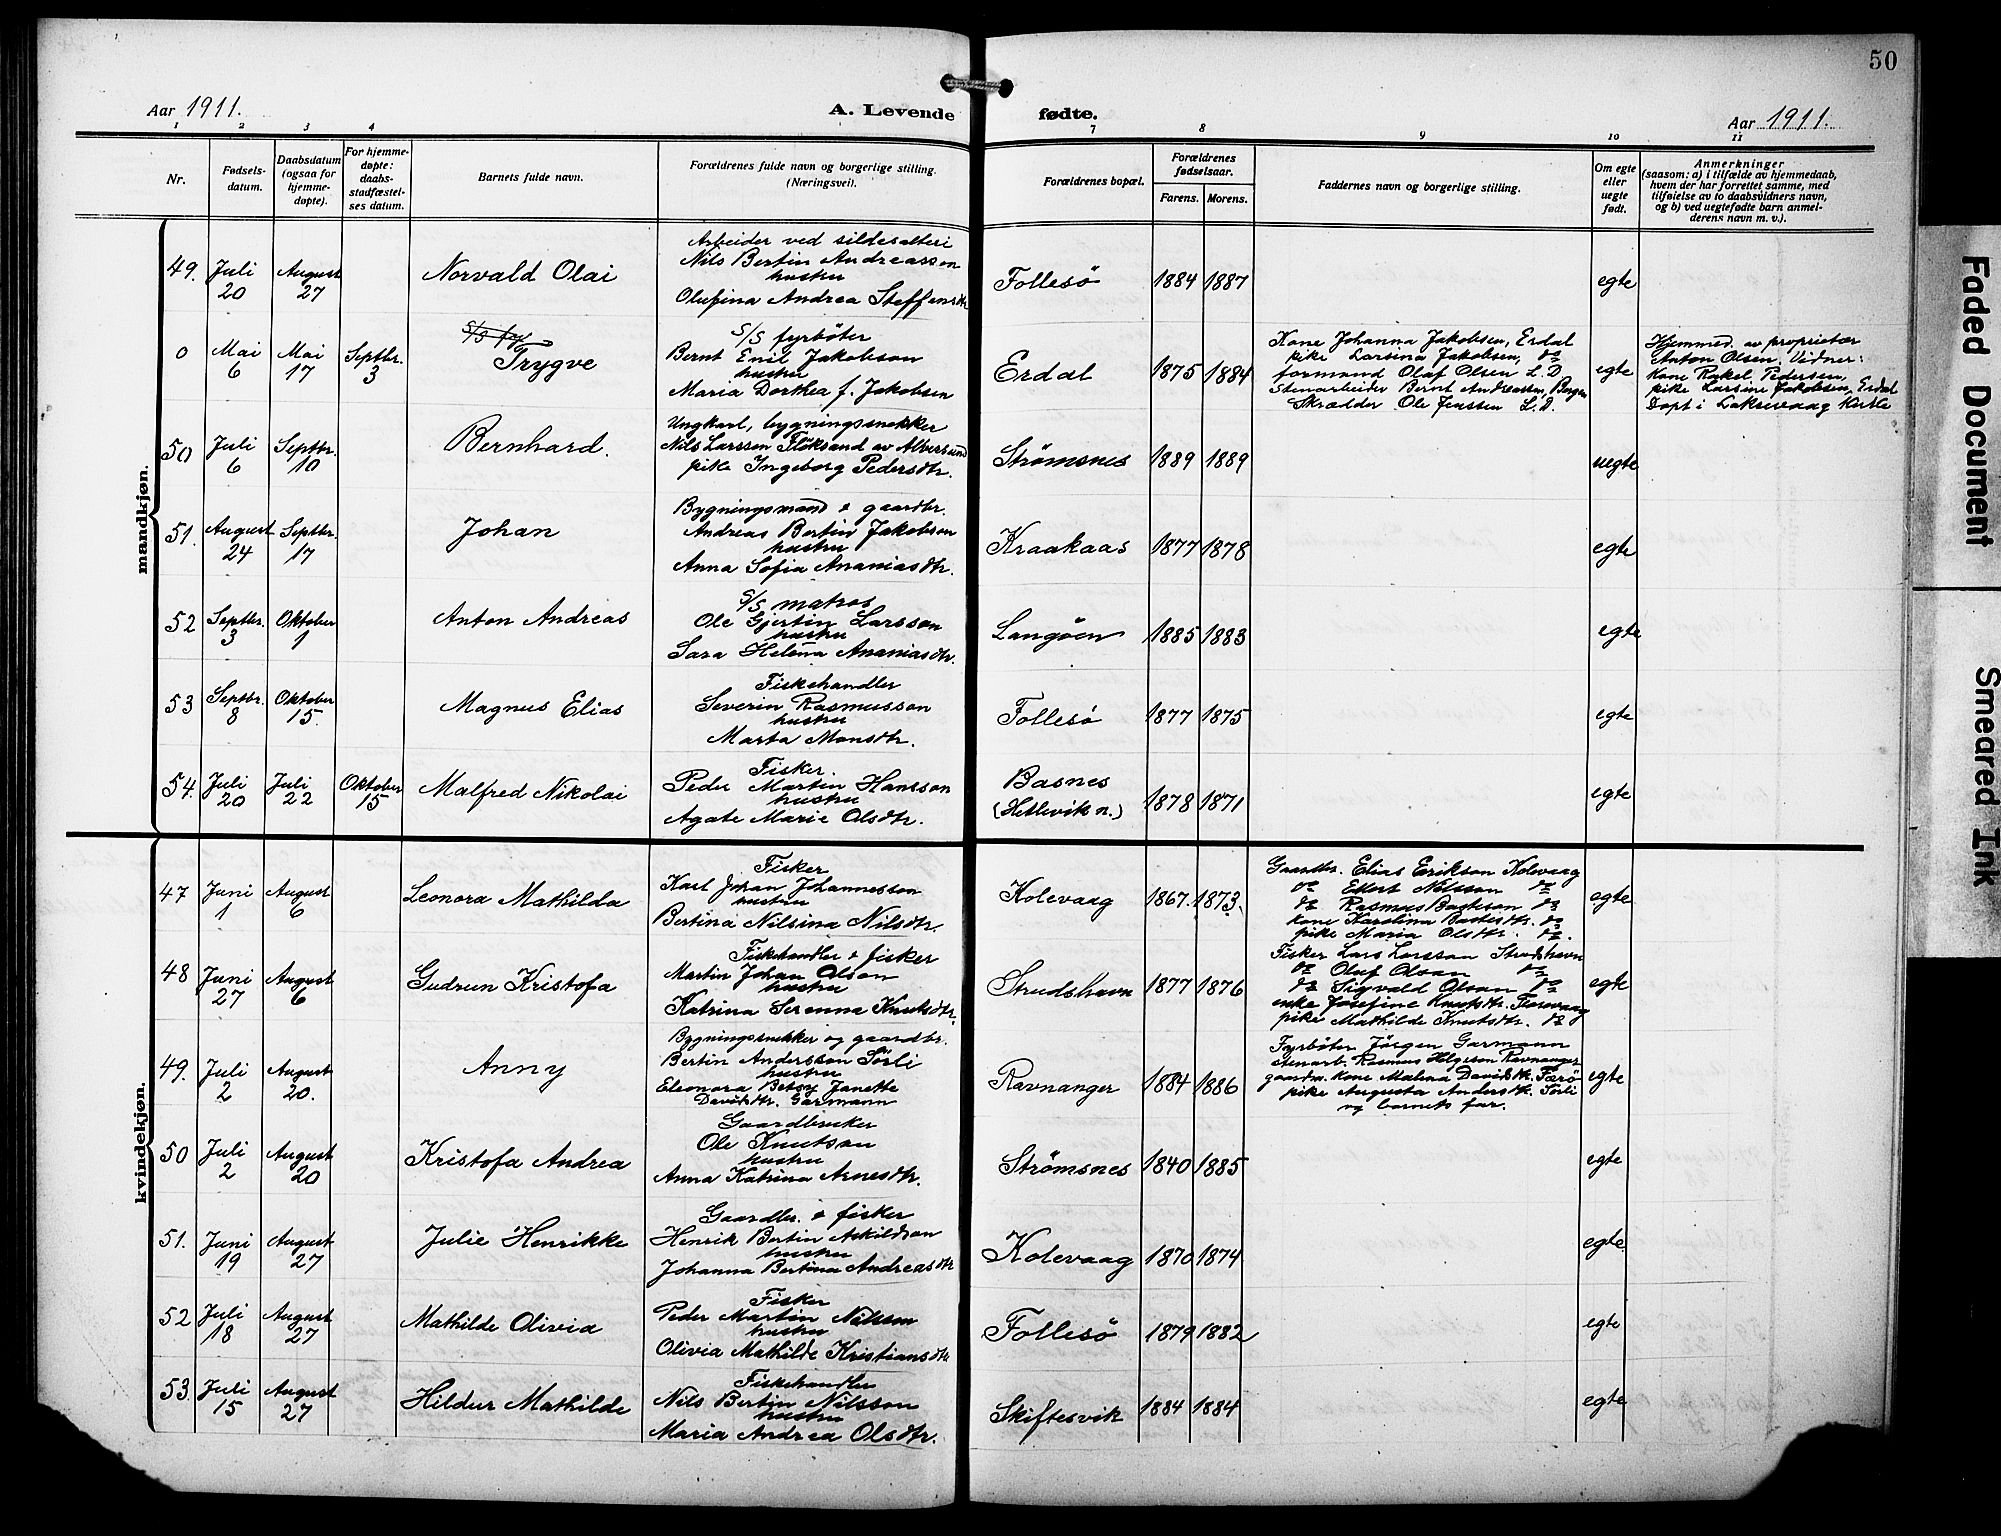 50
Aar 1911.
A. Levende fødte.
Aar 1911.
1 2 3 4 7 8 9 10 11
Nr.
Fødsels-
datum.
Daabsdatum
(ogsaa for
hjemme-
døpte).
For hjemme-
døpte:
daabs-
stadfæstel-
ses datum.
Barnets fulde navn.
Forældrenes fulde navn og borgerlige stilling.
(Næringsvei).
Forældrenes bopæl.
Forældrenes
fødselsaar.
Farens. Morens.
Faddernes navn og borgerlige stilling.
Om egte
eller
uegte
født.
Anmerkninger
(saasom: a) i tilfælde av hjemmedaab,
hvem der har forrettet samme, med
tilføielse av to daabsvidners navn,
og b) ved uegtefødte barn anmel-
derens navn m. v.).
mandkjøn.
49. Juli 20 August 27 Norvald Olai
Arbeider ved sildesalteri
Nils Bertin Andreasson
hustru
Olufina Andrea Steffensdtr
Follesö 1884 1887 egte
0 Mai 6 Mai 17 Septbr. 3 Trygve
S/S fyrböter
Bernt Emil Jakobson
hustru
Maria Dorthea f. Jakobsen
Erdal 1875 1884
Kone Johanna Jakobsen, Erdal
pike Larsina Jakobsen, do
formand Olaf Olsen L.D.
Stenarbeider Bernt Andreassen, Bergen
Skrædder Ole Jenssen L.D.
egte
Hjemmed. av proprietær
Anton Olsen. Vidner:
Kone Rakel Pedersen,
pike Larsine Jakobsen, Erdal
Døpt i Laksevaag Kirke
50 Juli 6 Septbr. 10 Bernhard.
Ungkarl, bygningssnekker
Nils Larssen Flöksand av Alversund
pike Ingeborg Pedersdtr.
Strømsnes 1889 1889 uegte
51. August 24 Septbr. 17 Johan
Bygningsmand & gaardbr.
Andreas Bertin Jakobson
hustru
Anna Sofia Ananiasdtr.
Kraakaas 1877 1878 egte
52 Septbr. 3 Oktober 1 Anton Andreas
S/S matros
Ole Gjertin Larsson
hustru
Sara Helena Ananiasdtr.
Langöen 1885 1883 egte
53 Septbr. 8 Oktober 15. Magnus Elias
Fiskehandler
Severin Rasmusson
hustru
Marta Monsdtr.
Follesö 1877 1875 egte
54. Juli 20 Juli 22 Oktober 15 Malfred Nikolai
Fisker.
Peder Martin Hansson
hustru
Agate Marie Olsdtr.
Basnes
(Hetlevik n.)
1878 1871 egte
kvindekjøn.
47 Juni 1 August 6 Leonora Mathilda
Fisker
Karl Johan Johannesson
hustru
Bertina Nilsina Nilsdtr.
Kolevaag 1867. 1873.
Gaardbr. Elias Erikson Kolevaag
do Ellert Nilsson do
do Rasmus Basteson do
kone Karolina Bastesdtr. do
pike Maria Olsdtr. do.
egte
48 Juni 27 August 6 Gudrun Kristofa
Fiskehandler & fisker
Martin Johan Olson
hustru
Katrina Serenna Knutsdtr.
Strudshavn 1877 1876
Fisker Lars Larsson Strudshavn
do Oluf Olsan do
do Sigvald Olsan do
enke Josefine Knutsdtr. Florvaag
pike Mathilde Knutsdtr. do
egte
49. Juli 2 August 20. Anny
Bygningssnekker og gaardbr.
Bertin Andersson Sørli
hustru
Eleonora Betsy Janette
Davidsdtr. Garmann
Ravnanger 1884 1886
Fyrbøter Jörgen Garmann
stenarb. Rasmus Helgeson Ravnanger
gaardm. kone Malena Davidsdtr. Færö
pike Augusta Andersdtr. Sörli
og barnets far.
egte
50 Juli 2 August 20 Kristofa Andrea
Gaardbruker
Ole Knutson
hustru
Anna Katrina Arnesdtr.
Strömsnes 1840 1885 egte
51. Juni 19 August 27 Julie Henrikke
Gaardbr. & fisker
Henrik Bertin Askildson
hustru
Johanna Bertina Andreasdtr
Kolevaag 1870 1874 egte
52 Juli 18 August 27 Mathilde Olivia
Fisker
Peder Martin Nilsson
hustru
Olivia Mathilde Kristiansdtr
Follesö 1879 1882 egte
53. Juli 15 August 27 Hildur Mathilde
Fiskehandler
Nils Bertin Nilsson
hustru
Maria Andrea Olsdtr.
Skiftesvik 1884 1884 egte
Faded Document
Smeared Ink